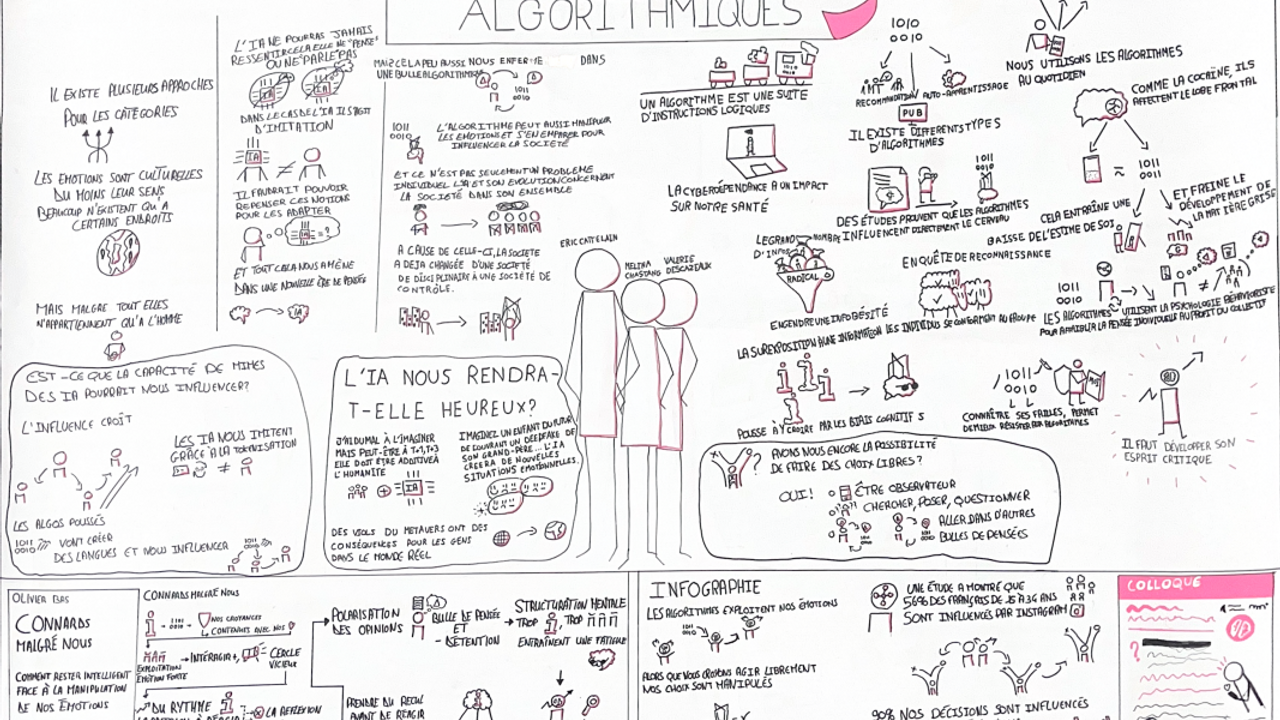 ALGORITHMIQUES
IL EXISTE PLUSIEURS APPROCHES
POUR LES CATÉGORIES
LES EMOTIONS SONT CULTURELLES
DU MOINS LEUR SENS
BEAUCOUP N'EXISTENT QU'A
CERTAINS ENDROITS
MAIS MALGRE TOUT ELLES
N'APPARTIENNENT QU'A L'HOMME
L'IA NE POURRAS JAMAIS
RESSENTIR CELA ELLE NE "PENSE"
OU NE PARLE PAS
DANS LE CAS DE L'IA ILS'AGIT
D'IMITATION
IA
≠
IL FAUDRAIT POUVOIR
REPENSER CES NOTIONS
POUR LES ADAPTER
IA = ?
ET TOUT CELA NOUS AMÈNE
DANS UNE NOUVELLE ÈRE DE PENSÉE
IA
MAIS CELA PEU AUSSI NOUS ENFERME DANS
UNE BULLE ALGORITHMIQUE
1011
0010
L'ALGORITHME PEUT AUSSI MANIPULER
LES EMOTIONS ET S'EN EMPARER POUR
INFLUENCER LA SOCIÉTÉ
ET CE N'EST PAS SEULEMENT UN PROBLEME
INDIVIDUEL L'IA ET SON EVOLUTION CONCERNENT
LA SOCIÉTÉ DANS SON ENSEMBLE
A CAUSE DE CELLE-CI, LA SOCIETE
A DEJA CHANGÉE D'UNE SOCIÉTÉ
DE DISCIPLINAIRE À UNE SOCIÉTÉ DE
CONTRÔLE.
ERIC CATTELAIN
MELINA
CHASTANG
VALERIE
DESCAZEAUX
UN ALGORITHME EST UNE SUITE
D'INSTRUCTIONS LOGIQUES
LA CYBERDÉPENDANCE A UN IMPACT
SUR NOTRE SANTÉ
LE GRAND NOMBRE
D'INFOS
RADICAL
ENGENDRE UNE INFOBÉSITÉ
LA SUREXPOSITION A UNE INFORMATION
POUSSE A Y CROIRE PAR LES BIAIS COGNITIFS
1010
0010
RECOMMANDATION
AUTO-APPRENTISSAGE
PUB
IL EXISTE DIFFERENTS TYPES
D'ALGORITHMES
DES ÉTUDES PROUVENT QUE LES ALGORITHMES
INFLUENCENT DIRECTEMENT LE CERVEAU
EN QUÊTE DE RECONNAISSANCE
LES INDIVIDUS SE CONFORMENT AU GROUPE
1011
0010
CONNAÎTRE SES FAILLES, PERMET
DE MIEUX RÉSISTER AUX ALGORITHMES
NOUS UTILISONS LES ALGORITHMES
AU QUOTIDIEN
COMME LA COCAÏNE, ILS
AFFECTENT LE LOBE FRONTAL
=
1011
0010
CELA ENTRAÎNE UNE
BAISSE DE L'ESTIME DE SOI
ET FREINE LE
DÉVELOPPEMENT DE
LA MATIÈRE GRISE
1011
0010
LES ALGORITHMES UTILISENT LA PSYCHOLOGIE BEHAVIORISTE
POUR AFFAIBLIR LA PENSÉE INDIVIDUELLE AU PROFIT DU COLLECTIF
IL FAUT DÉVELOPPER SON
ESPRIT CRITIQUE
EST-CE QUE LA CAPACITÉ DE MIMES
DES IA POURRAIT NOUS INFLUENCER?
L'INFLUENCE CROÎT
LES IA NOUS IMITENT
GRÂCE A LA TOKENISATION
≠
LES ALGOS POUSSÉS
1011
0010
VONT CRÉER
DES LANGUES ET NOUS INFLUENCER
L'IA NOUS RENDRA-
T-ELLE HEUREUX?
J'AI DU MAL À L'IMAGINER
MAIS PEUT-ÊTRE À T+1, T+3
ELLE DOIT ÊTRE ADDITIVE À
L'HUMANITÉ
IA
IMAGINEZ UN ENFANT DU FUTUR
DECOUVRANT UN DEEPFAKE DE
SON GRAND-PÈRE... L'IA
CRÉERA DE NOUVELLES
SITUATIONS EMOTIONNELLES.
DES VIOLS DU METAVERS ONT DES
CONSÉQUENCES POUR LES GENS
DANS LE MONDE RÉEL
AVONS NOUS ENCORE LA POSSIBILITÉ
DE FAIRE DES CHOIX LIBRES?
OUI!
ÊTRE OBSERVATEUR
CHERCHER, POSER, QUESTIONNER
ALLER DANS D'AUTRES
BULLES DE PENSÉES
OLIVIER BAS
CONNARDS
MALGRÉ NOUS
COMMENT RESTER INTELLIGENT
FACE À LA MANIPULATION
DE NOS ÉMOTIONS
CONNARDS MALGRÉ NOUS
NOS CROYANCES
CONTENUTS AVEC NOS
EXPLOITATION
EMOTION FORTE
INTÉRAGIR +
CERCLE
VICIEUX
DU RYTHME
LA REFLEXION
POLARISATION
DES OPINIONS
BULLE DE PENSÉE
ET
DÉTENTION
STRUCTURATION MENTALE
TROP
TROP
ENTRAÎNENT UNE FATIGUE
PRENDRE DU RECUL
AVANT DE RÉAGIR
INFOGRAPHIE
LES ALGORITHMES EXPLOITENT NOS ÉMOTIONS
ALORS QUE NOUS CROYONS AGIR LIBREMENT
NOS CHOIX SONT MANIPULÉS
UNE ÉTUDE A MONTRÉ QUE
56% DES FRANÇAIS DE 15 À 34 ANS
SONT INFLUENCÉS PAR INSTAGRAM
90% NOS DÉCISIONS SONT INFLUENCÉS
COLLOQUE